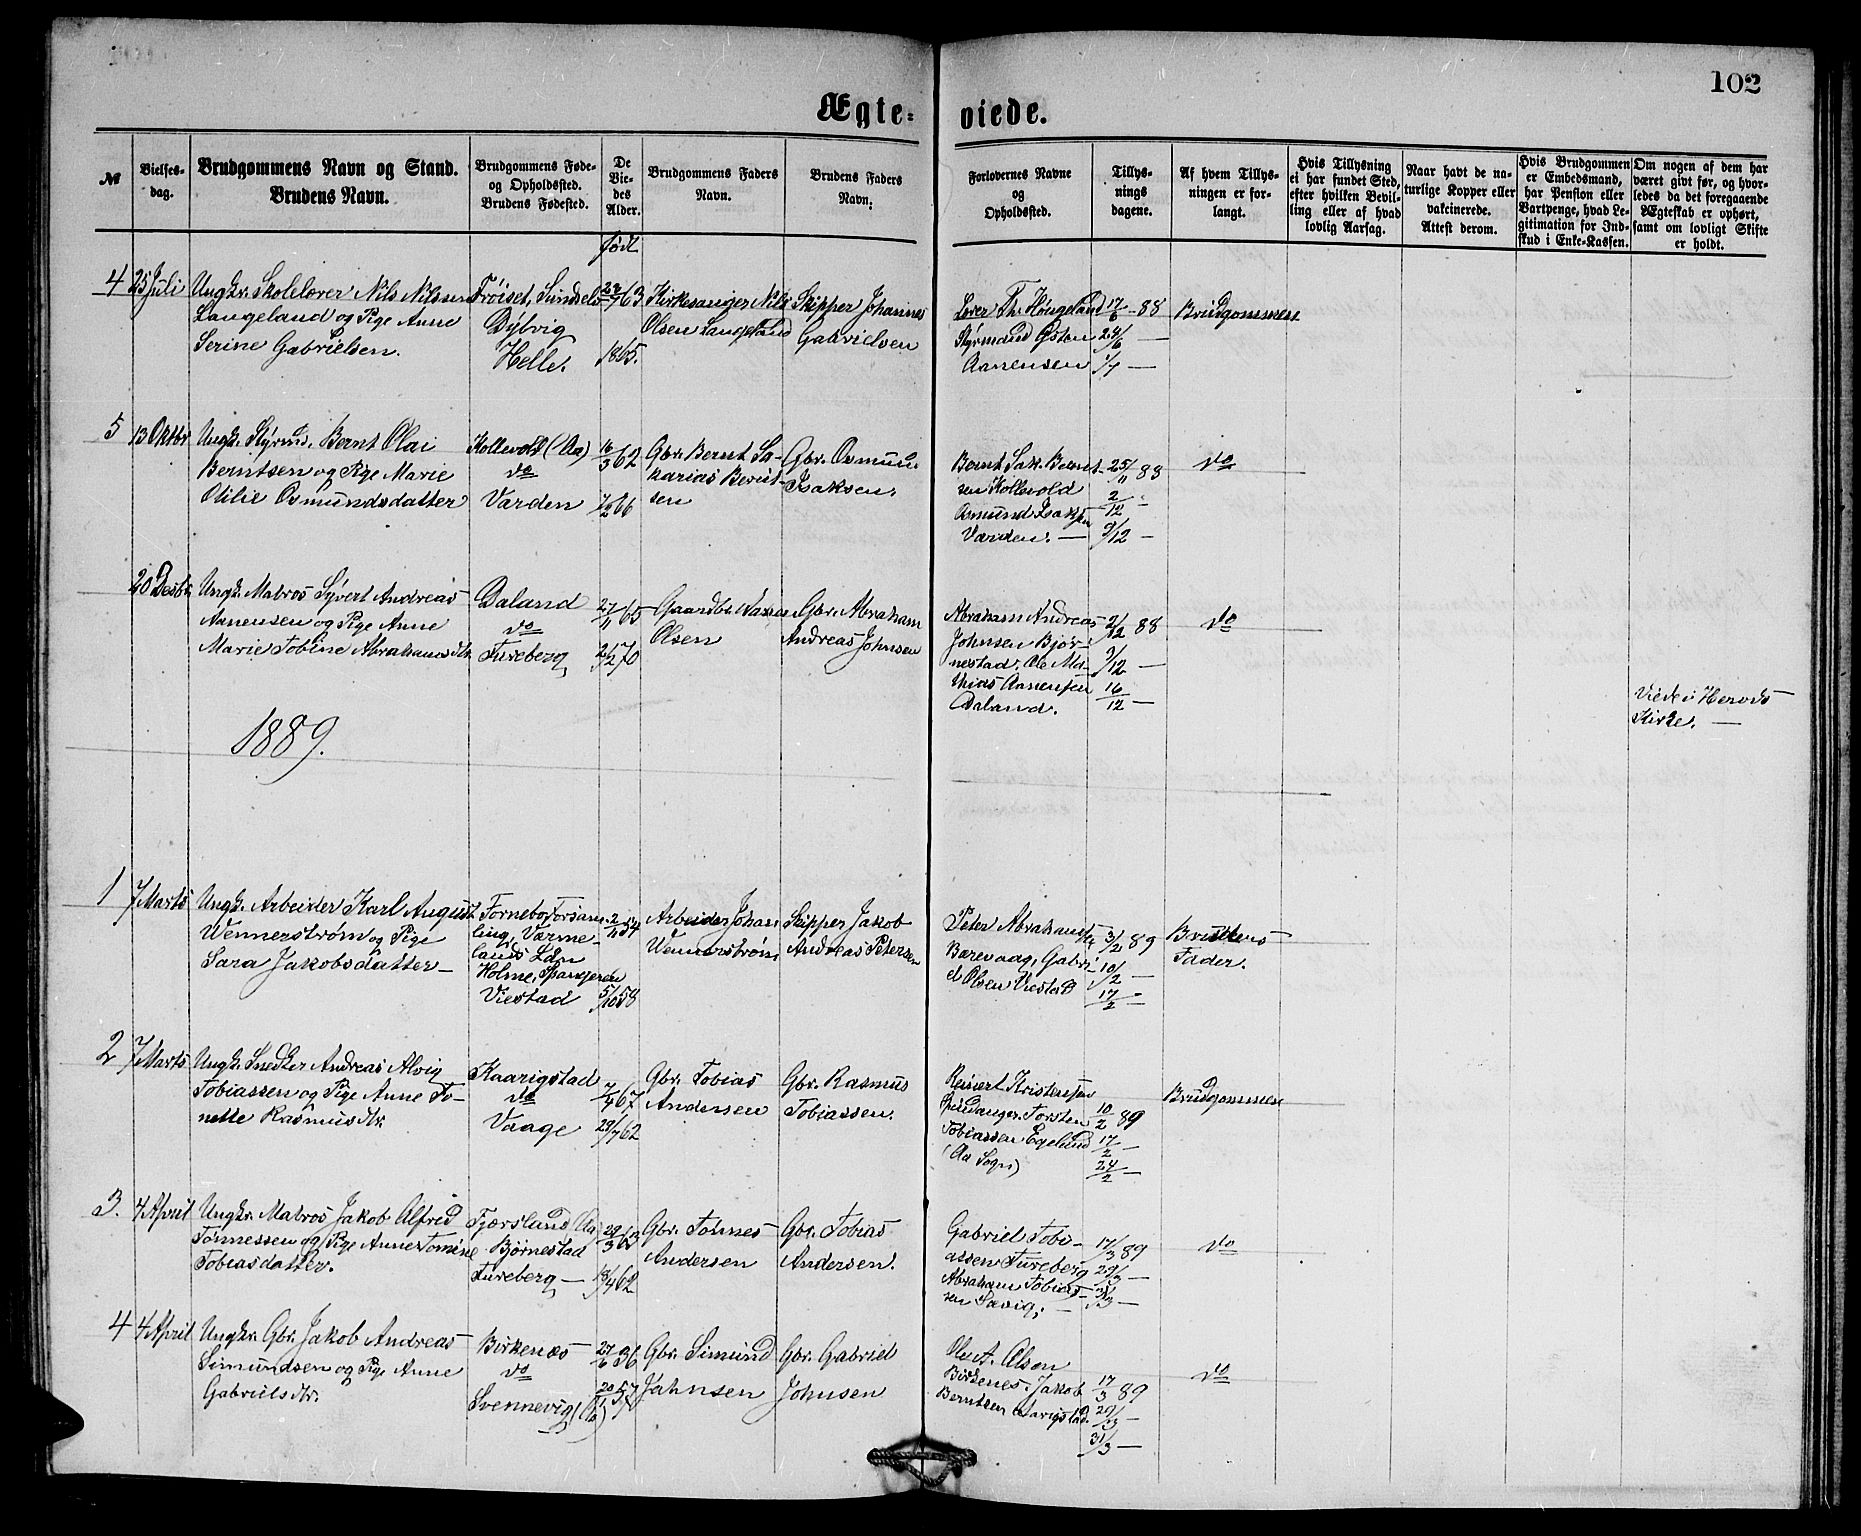 102
Ægte- viede.
№
Vielses-
dag.
Brudgommens Navn og Stand.
Brudens Navn.
Brudgommens Føde-
og Opholdssted.
Brudens Fødested.
De
Vie-
des
Alder.
Brudgommens Faders
Navn.
Brudens Faders
Navn.
Forlovernes Navne
og
Opholdssted.
Tillys-
nings
dagene.
Af hvem Tillys-
ningen er for-
langt.
Hvis Tillysning
ei har fundet Sted,
efter hvilken Bevil-
ling eller af hvad
lovlig Aarsag.
Naar havt de na-
turlige Kopper eller
vakcinerede.
Attest derom.
Hvis Brudgommen
er Embedsmand,
har Pension eller
Vartpenge, hvad Le-
gitimation for Ind-
skud i Enke-Kassen.
Om nogen af dem har
været givt før, og hvor-
ledes da det foregaaende
Ægteskab er ophørt,
samt om lovligt Skifte
er holdt.
født
4
25 Juli
Ungkr. Skolelærer Nils Nilssen
Langeland og Pige Anne
Serine Gabrielsen.
Frøiset, Sundseli
Dybvig
Helle.
1865.
Kirkesanger Nils
Olsen Langeland
Skipper Johannes
Gabrielsen
Lærer Th. Høngeland
Styrmand Østen
Aanensen
17/6 - 88
24/6 —
1/7 —
Brudgommen
5
13 Oktbr
Ungk. Styrm. Bernt Olai
Berntsen og Pige Marie
Otilie Osmundsdatter
Kollevold (Aa)
do
Varden
16/3 62
7/2 66
Gbr. Bernt Sa-
karias Bernt-
sen
Gbr. Osmun
Isaksen.
Bernt Sak. Bernt-
sen Kollevold
Osmund Isaksen
Varden. —
25/11 88
2/12 -
9/12 —
do
20 Desbr.
Ungk. Matros Syvert Andreas
Aanensen og Pige Anne
Marie Tobine Abrahamsdtr.
Daland
do
Fureberg
27/11 65
2/2 70
Gaardbr. Aanen
Olsen
Gbr. Abraham
Andreas Johnsen
Abraham Andreas
Johnsen Bjør-
nestad, Ole Ma-
thias Aanensen
Daland.
2/12 88
9/12 —
16/12 —
do
Viede i Herods
Kirke. —
1889.
1
7 Marts
Ungk. Arbeider Karl August
Wennerstrøm og Pige
Sara Jakobsdatter —
Fornebo Forsam-
ling, Værme-
lands Län
Holme, Spangereid
Viestad
2/11 54
5/10 58
Arbeider Johan
Wennerstrøm
Skipper Jakob
Andreas Petersen
Peter Abrahamsen
Barevaag, Gabri-
el Olsen Viestad
3/2 89
10/2 —
17/2 —
Brudens
Fader.
2
7 Marts
Ungk. Snedker Andreas Alvig
Tobiassen og Pige Anne To-
nette Rasmusdtr.
Kaarigstad
do
Vaage
7/4 67
29/7 62
Gbr. Tobias
Andersen
Gbr. Rasmus
Tobiassen.
Reinert Kristensen
Torsten
Tobiassen Egeland
(Aa Sogn)
10/2 89
17/2 —
24/2 —
Brudgommen
3.
4 April
Ungkr. Matros Jakob Alfred
Tønnessen og Pige Anne Tomine
Tobiasdatter.
Fjærsland (Aa
Bjørnestad
Fureberg —
29/3 63
18/4 62
Gbr. Tønnes
Andersen
Gbr. Tobias
Andersen.
Gabriel Tobi-
assen Fureberg
Abraham Tobias-
sen Sævig. —
17/3 89
24/3 —
31/3 —
do
4
4 April
Ungkr. Gbr. Jakob Andreas
Simundsen og Pige Anne
Gabrielsdtr.
Birkenæs
do
Svennevig (Aa)
27/6 36
57
Gbr. Simund
Jahnsen
Gbr. Gabriel
Johnsen
Ole A. Olsen
Birkenes. Jakob
Berntsen
17/3 89
24/3 —
31/3 —
do